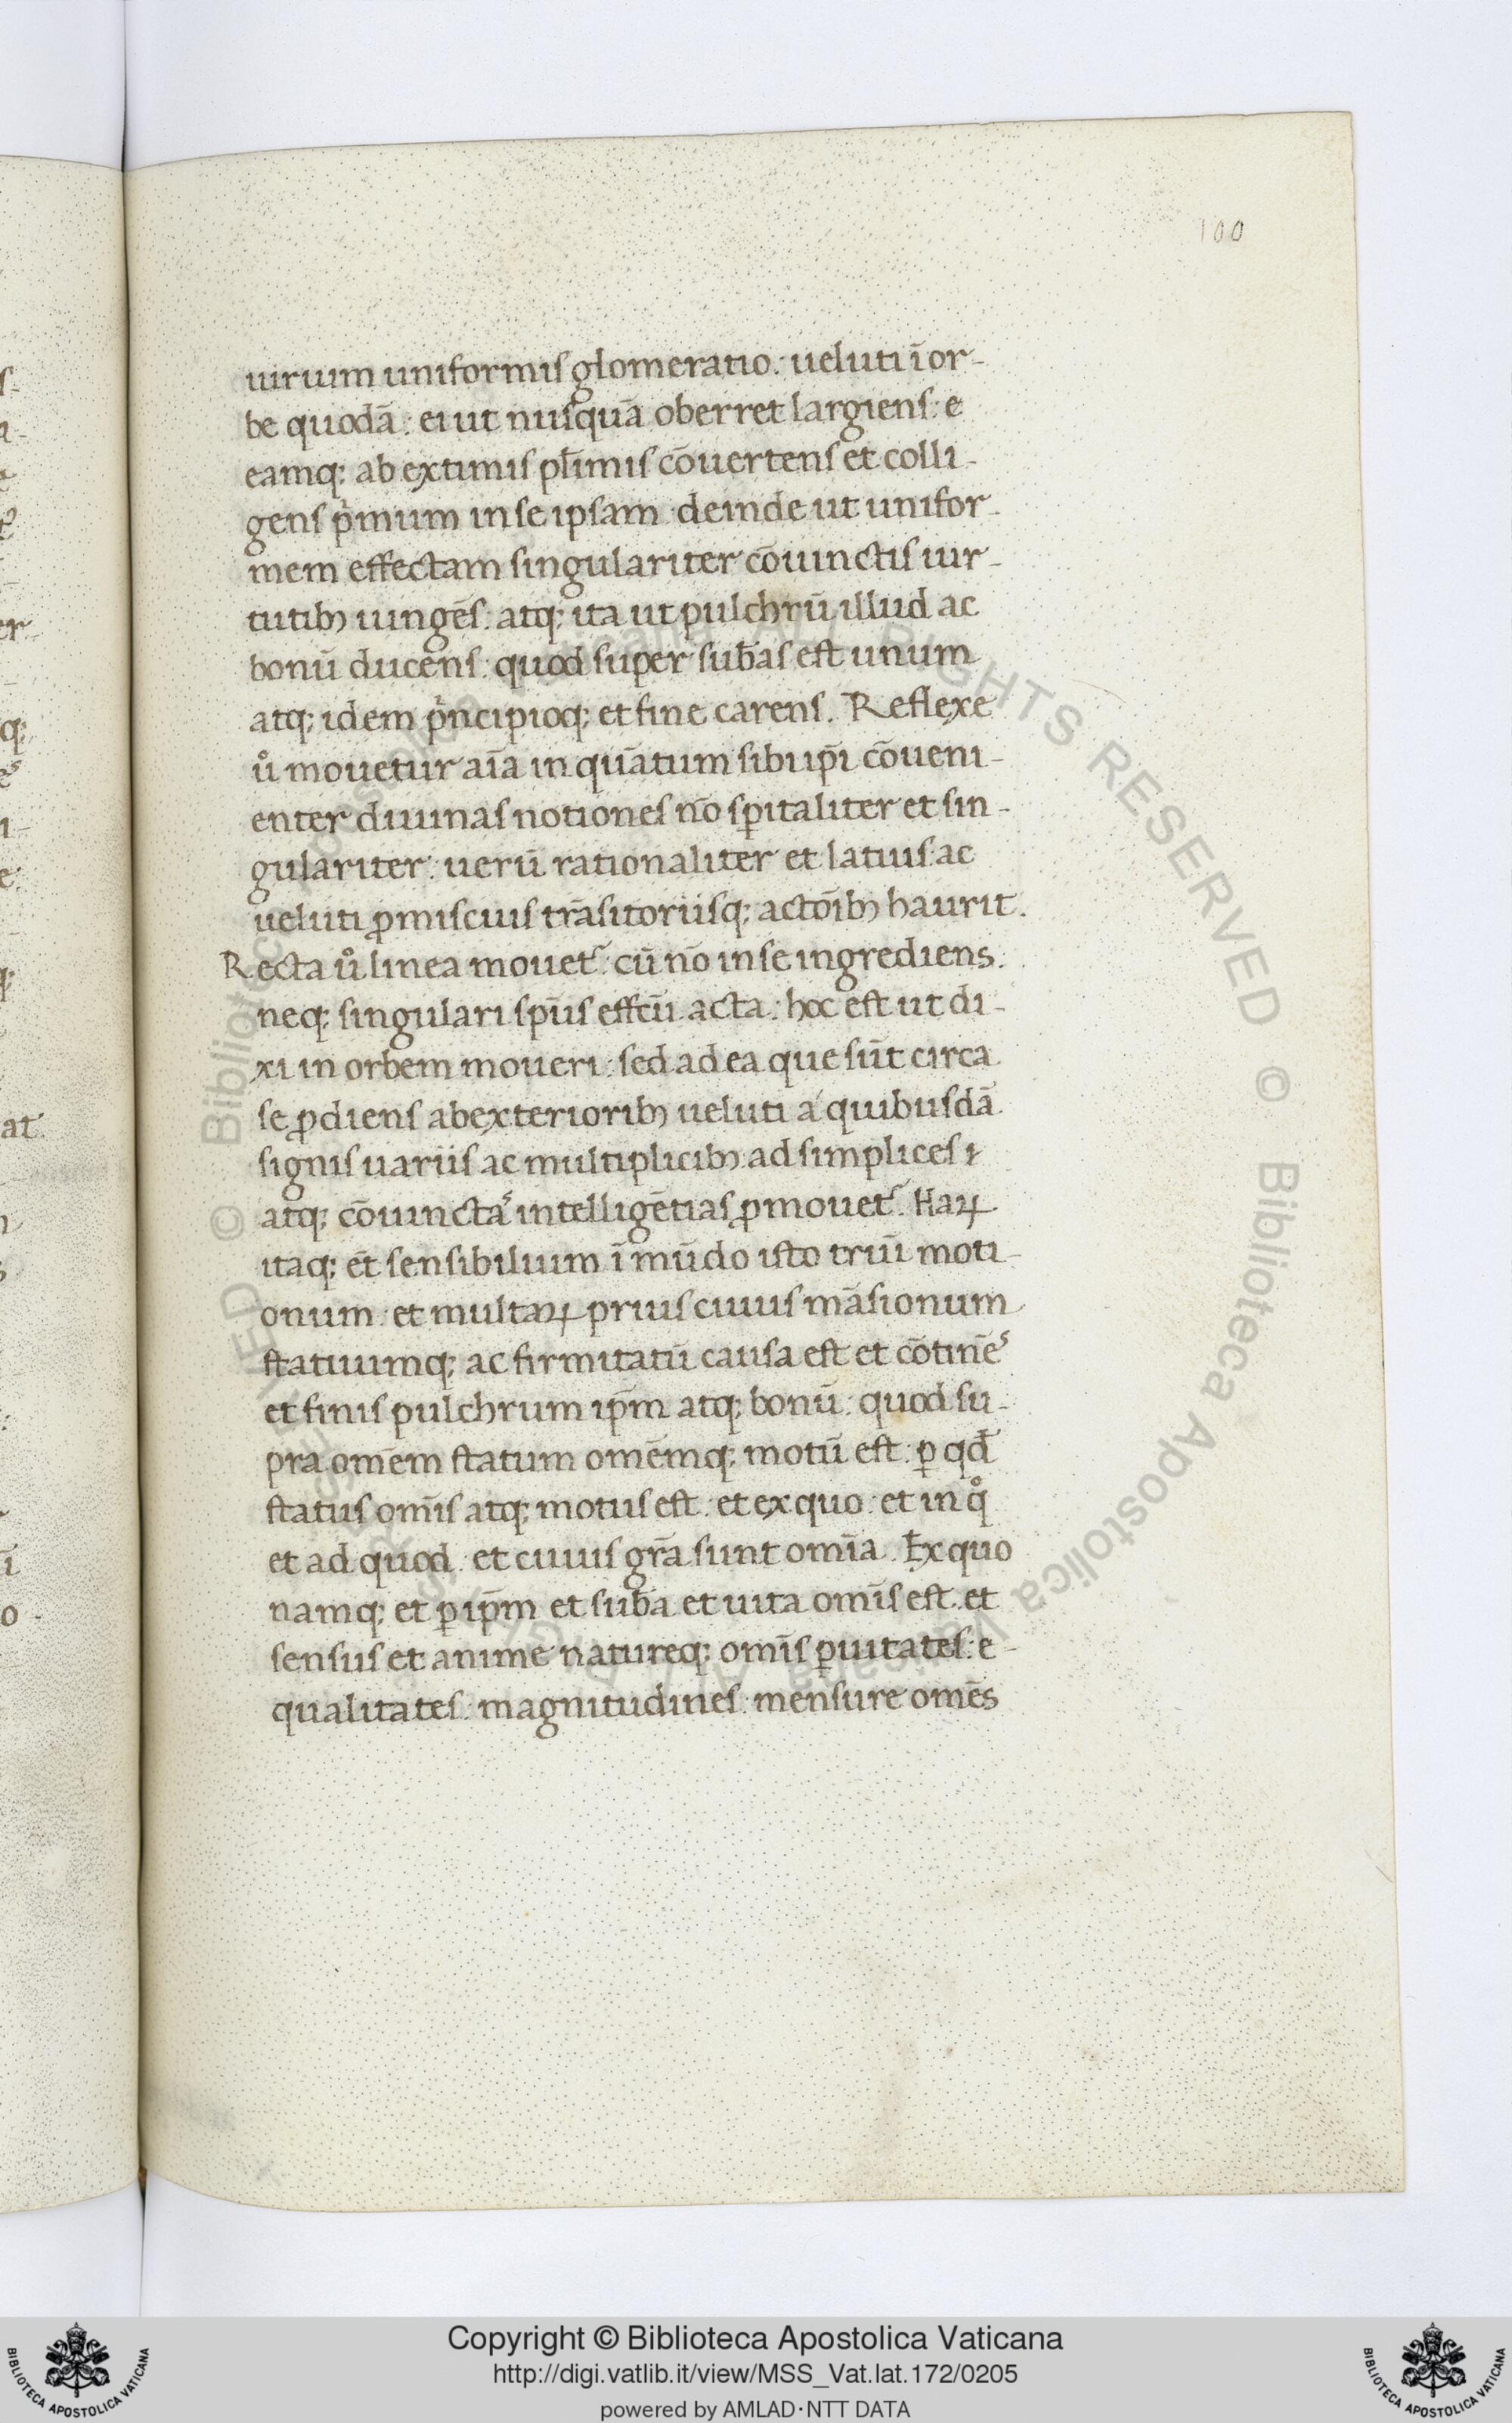 100
uirium uniformis glomeratio: ueluti ī or-
be quodā: ei ut nusquā oberret largiens: e
eamq; ab extimis pl̄imis cōuertens et colli-
gens pͥmum in se ipsam deinde ut unifor-
mem effectam singulariter cōiunctis uir-
tutibꝫ iungēs: atq; ita ut pulchrū illud ac
bonū ducens: quod super sub̄as est unum
atq; idem pͥncipioq; et fine carens. Reflexe
uͦ mouetur aīa in quātum sibi ip̄i cōueni-
enter diuinas notiones nō sp̄italiter et sin-
gulariter: uerū rationaliter et latius ac
ueluti ꝓmiscuis trāsitoriisq; actōibꝫ haurit.
Recta uͦ linea mouet᷑: cū nō in se ingrediens:
neq; singulari sp̄us effcū acta: hoc est ut di-
xi in orbem moueri: sed ad ea que sūt circa
se ꝓdiens ab exterioribꝫ ueluti a quibusdā
signis uariis ac multiplicibꝫ ad simplices
atq; cōiunctaˢ intelligētias ꝓmouet᷑. Haꝝ
itaq; et̄ sensibilium ī mūdo isto triū moti-
onum: et multaꝝ prius cuius māsionum
statiuumq; ac firmitatū causa est et cōtinēˢ
et finis pulchrum ip̄m atq; bonū: quod su-
pra omēm statum omēmq; motū est: ꝑ qd̄
status omīs atq; motus est: et ex quo: et in qͦ
et ad quod: et cuius gr̄a sunt omīa. Ex quo
namq; et ꝑ ip̄m et sub̄a et uita omīs est: et
sensus et anime natureq; omīs ꝑuitates: e-
qualitates: magnitudines: mensure omēs
Copyright © Biblioteca Apostolica Vaticana
http://digi.vatlib.it/view/MSS_Vat.lat.172/0205
powered by AMLAD·NTT DATA